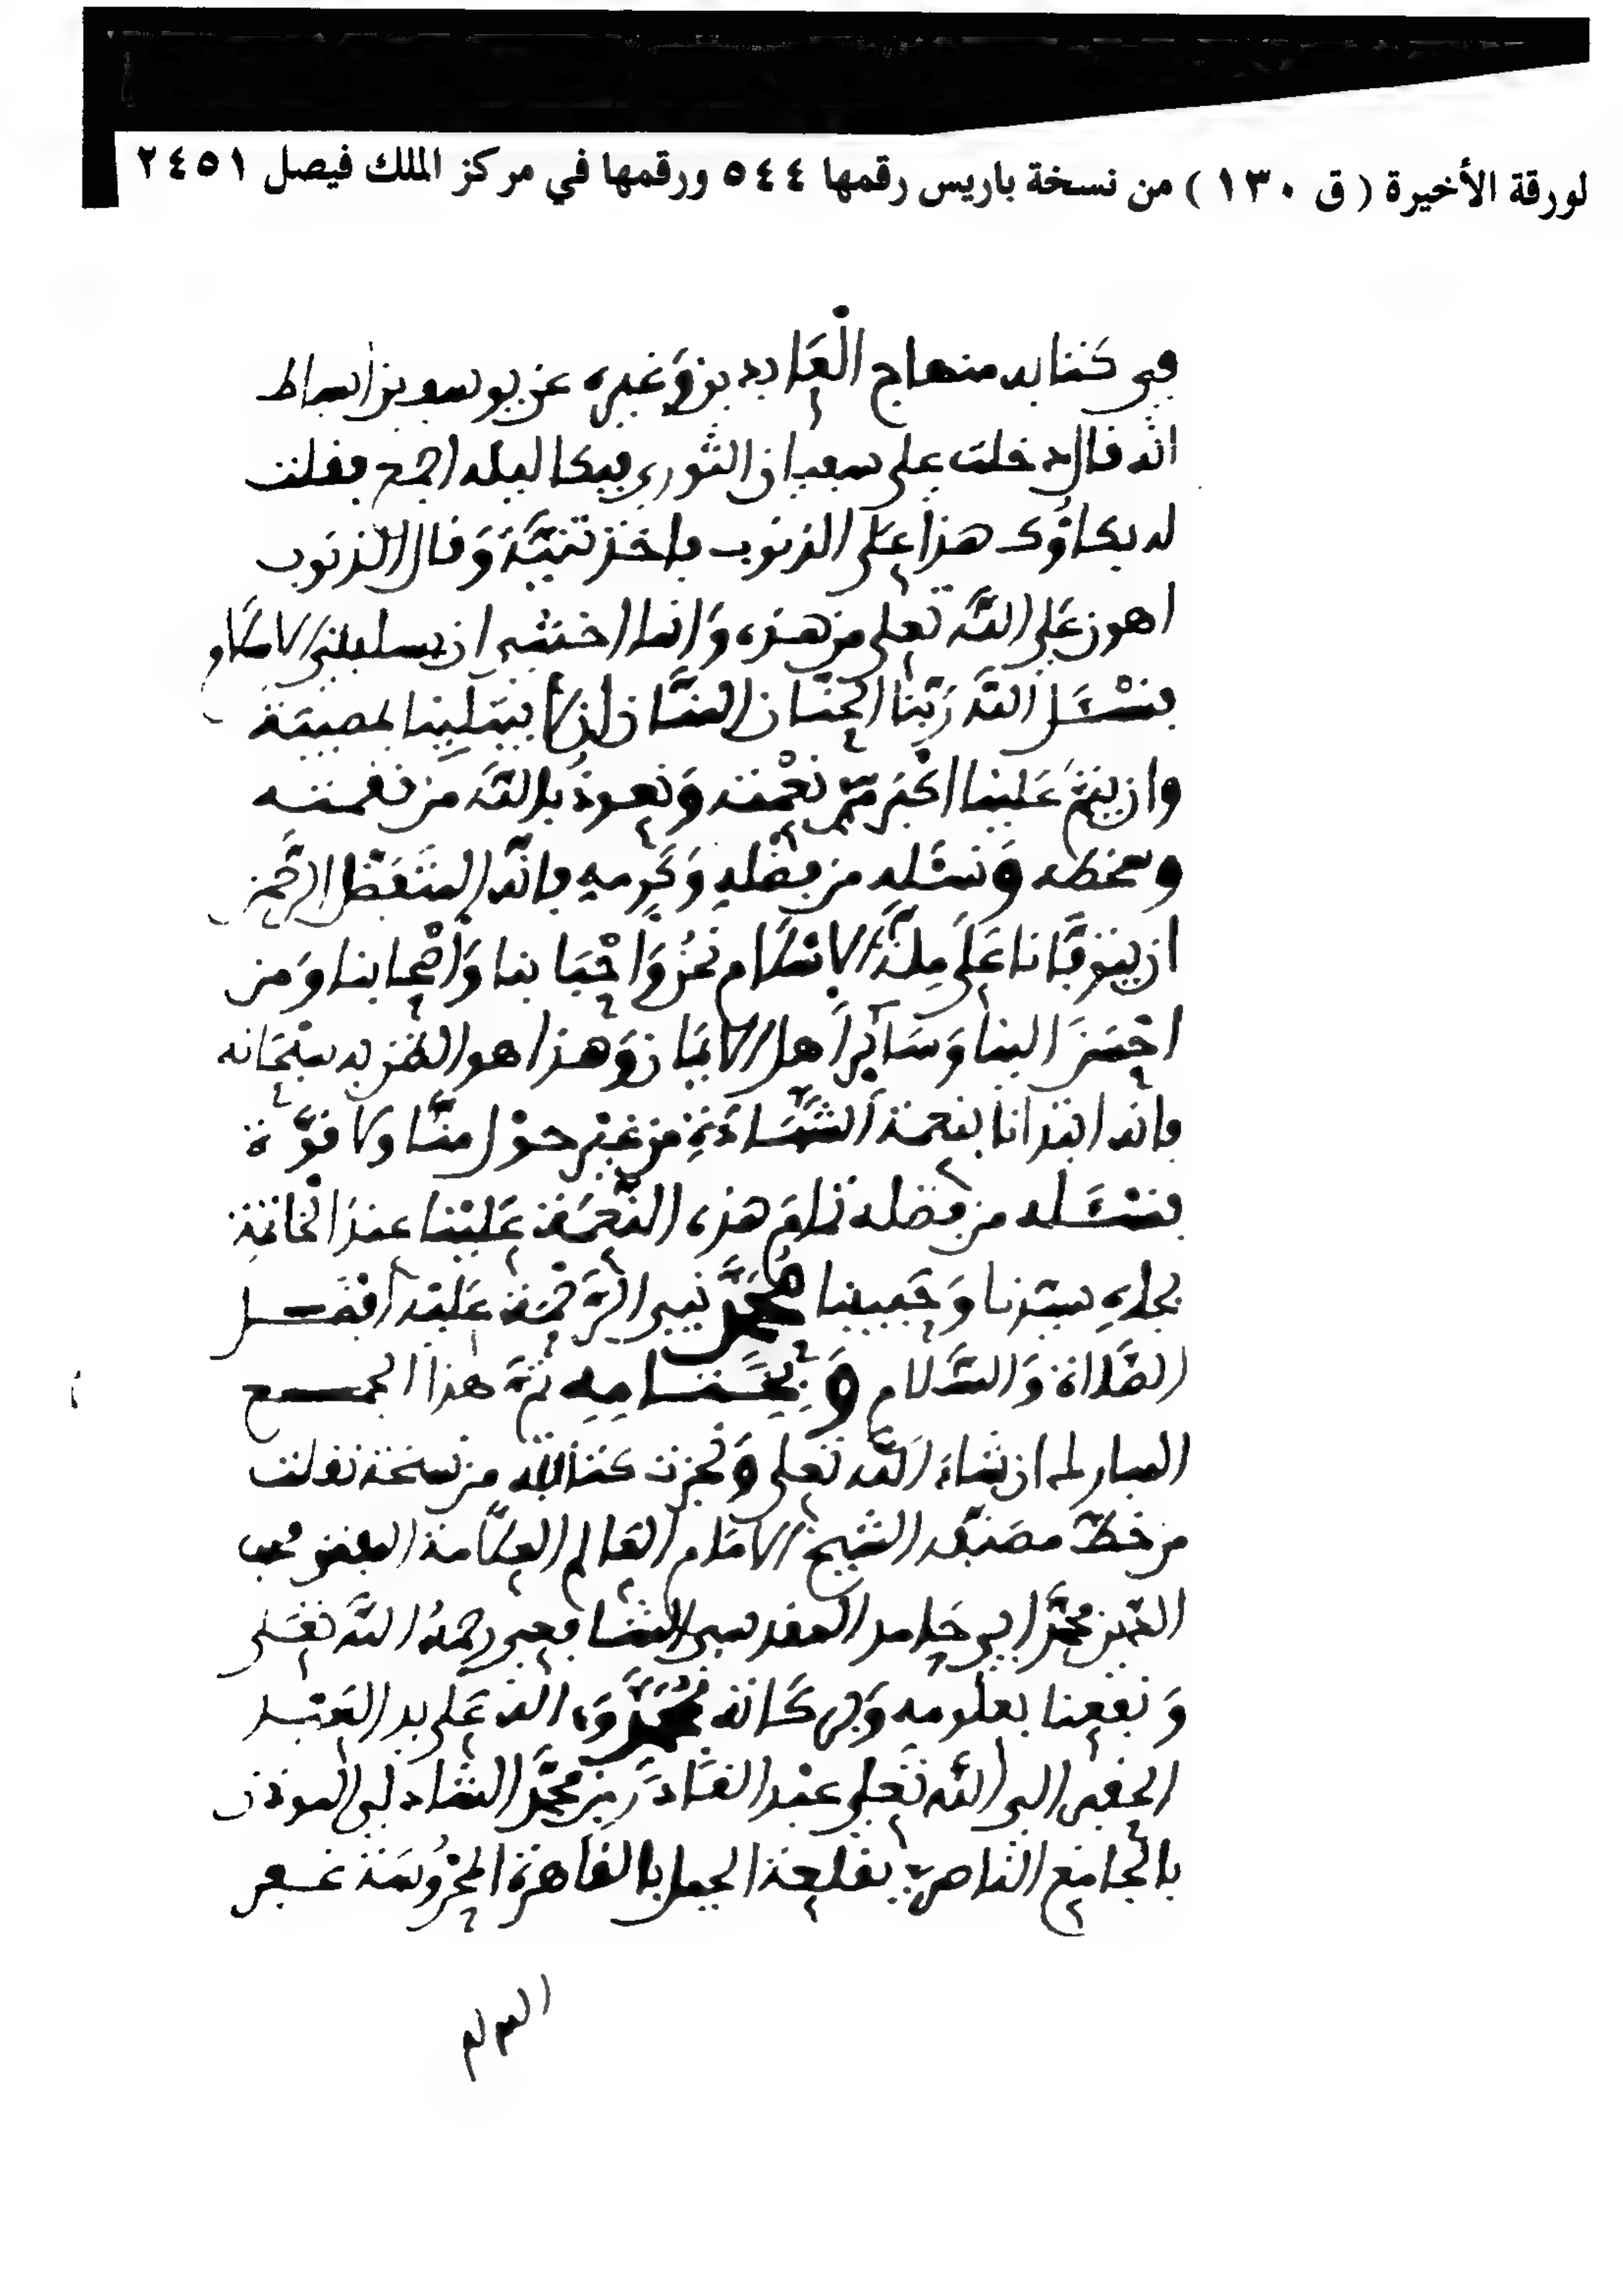 لورقة الأخيرة ( ق ١٣٠ ) من نسخة باريس رقمها ٥٤٤ ورقمها في مركز الملك فيصل ٢٤٥١
في كتابه منهاج العابدين وغيره عن يوسف بن اسباط
انه قال دخلت على سفيان الثوري فبكا ليله اجمع فقلت
له بكاؤك هذا على الذنوب فاخذ تبنة وقال الذنوب
اهون على الله تعلى من هذه وانما اخشى ان يسلبني الاسلام
فنسئل الله ربنا الحنان المنان ان لا يبتلينا بمصيبة
وان يتم علينا اكبر نعمته ونعوذ بالله من نقمته
وسخطه ونسئله من فضله وكرمه فانه المتفضل الرحمن
ان يتوفانا على ملة الاسلام نحن واحبابنا واصحابنا ومن
احسن الينا وسائر اهل الايمان وهذا هو الظن به سبحانه
فانه ابتدانا بنعمة الشهادة من غير حول منا ولا قوة
فنسئله من فضله تمام هذه النعمة علينا عند الخاتمة
بجاه سيدنا وحبيبنا محمد نبي الرحمة عليه افضل
الصلاة والسلام وبختامه تم هذا الجمع
المبارك ان شاء الله تعلى ونجزت كتابته من نسخة نقلت
من خط مصنفه الشيخ الامام العالم العلامة محب
الدين محمد ابي حامد المقدسي الشافعي رحمه الله تعلى
ونفعنا بعلومه وبركاته بمحمد وءاله على يد العبد
الفقير الى الله تعلى عبد القادر بن محمد الشاذلي الموذن
بالجامع الناصري بقلعة الجبل بالقاهرة المحروسة غفر
الله له